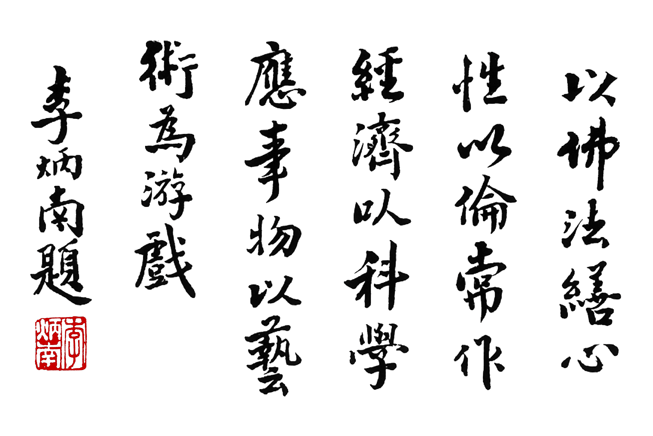 以佛法繕心
性以倫常作
經濟以科學
應事物以藝
術為游戲
李炳南題
李炳南